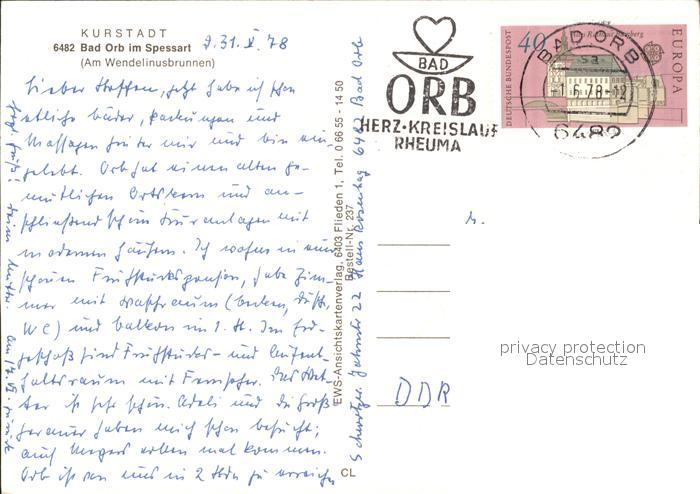 KURSTADT
6482 Bad Orb im Spessart
(Am Wendelinusbrunnen)
d. 31. V. 78
Lieber Steffen, jetzt habe ich schon
etliche Bäder, Packungen und
Massagen hinter mir und bin ein-
gelebt. Orb hat einen alten ge-
mütlichen Ortskern und an-
schließend schöne Kuranlagen mit
modernen Häusern. Ich wohne in einer
schönen Frühstückspension, habe Zim-
mer mit Waschraum (Becken, Dusche,
WC) und Balkon im 1. St. Im Erd-
geschoß sind Frühstücks- und Aufent-
haltsraum mit Fernseher. Das Wet-
ter ist sehr schön. Adeli und die Groß-
gerauer haben mich schon besucht;
auch wollen mal kommen.
Orb ist von uns in 2 Stdn zu erreichen
deine Mutter
Am 17. VI. zurück
EWS-Ansichtskartenverlag, 6403 Flieden 1, Tel. 0 66 55 - 14 50
Bestell-Nr. 237
22 6482 Bad Orb
CL
BAD
ORB
HERZ·KREISLAUF
RHEUMA
DEUTSCHE BUNDESPOST
40
Altes Rathaus Bamberg
EUROPA
BAD ORB
sa
-1.6.78-12
6482
DDR
privacy protection
Datenschutz